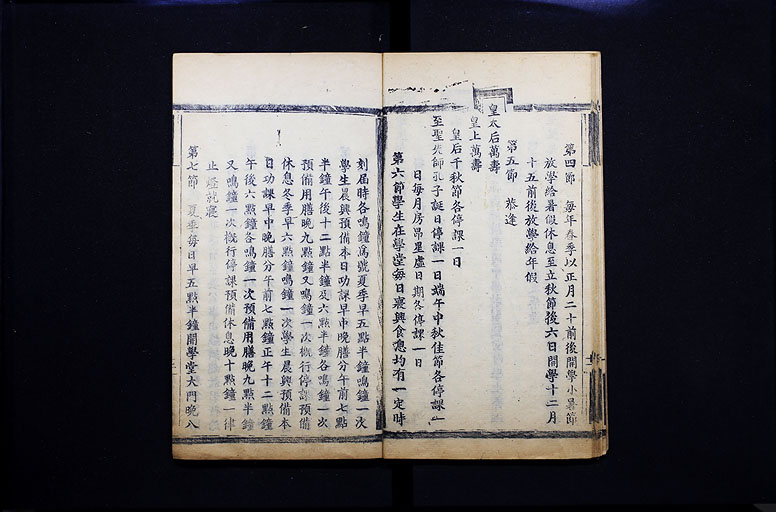 第四節 每年春季以正月二十前後開學小暑節
放學給暑假休息至立秋節後六日開學十二月
十五前後放學給年假
第五節 恭逢
皇太后萬壽
皇上萬壽
皇后千秋節各停課一日
至聖先師孔子誕日停課一日端午中秋佳節各停課一
日每月房昴星虛日期各停課一日
第六節學生在學堂每日寢興食息均有一定時
刻屆時各鳴鐘為號夏季早五點半鐘鳴鐘一次
學生晨興預備本日功課早中晚膳分午前七點
半鐘午後十二點半鐘及六點半鐘各鳴鐘一次
預備用膳晚九點鐘又鳴鐘一次概行停課預備
休息冬季早六點鐘鳴鐘一次學生晨興預備本
日功課早中晚膳分午前七點鐘正午十二點鐘
午後六點鐘各鳴鐘一次預備用膳晚九點半鐘
又鳴鐘一次概行停課預備休息晚十點鐘一律
止燈就寢
第七節 夏季每日早五點半鐘開學堂大門晚八